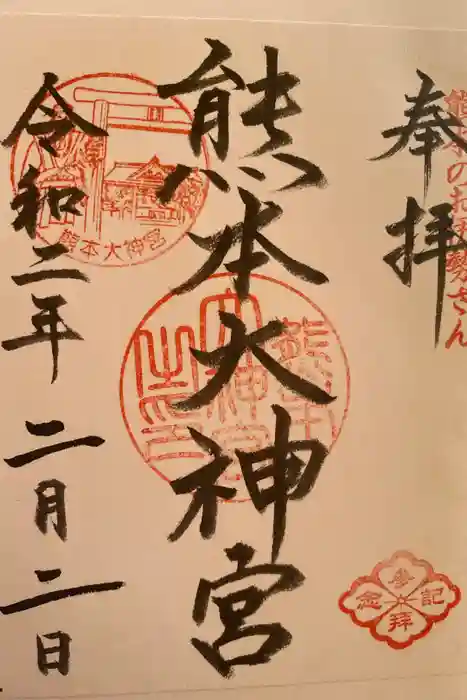 奉拝
熊本のお伊勢さん
熊本大神宮
熊本大神宮之印
令和二年 二月二日
熊本大神宮
参拝記念